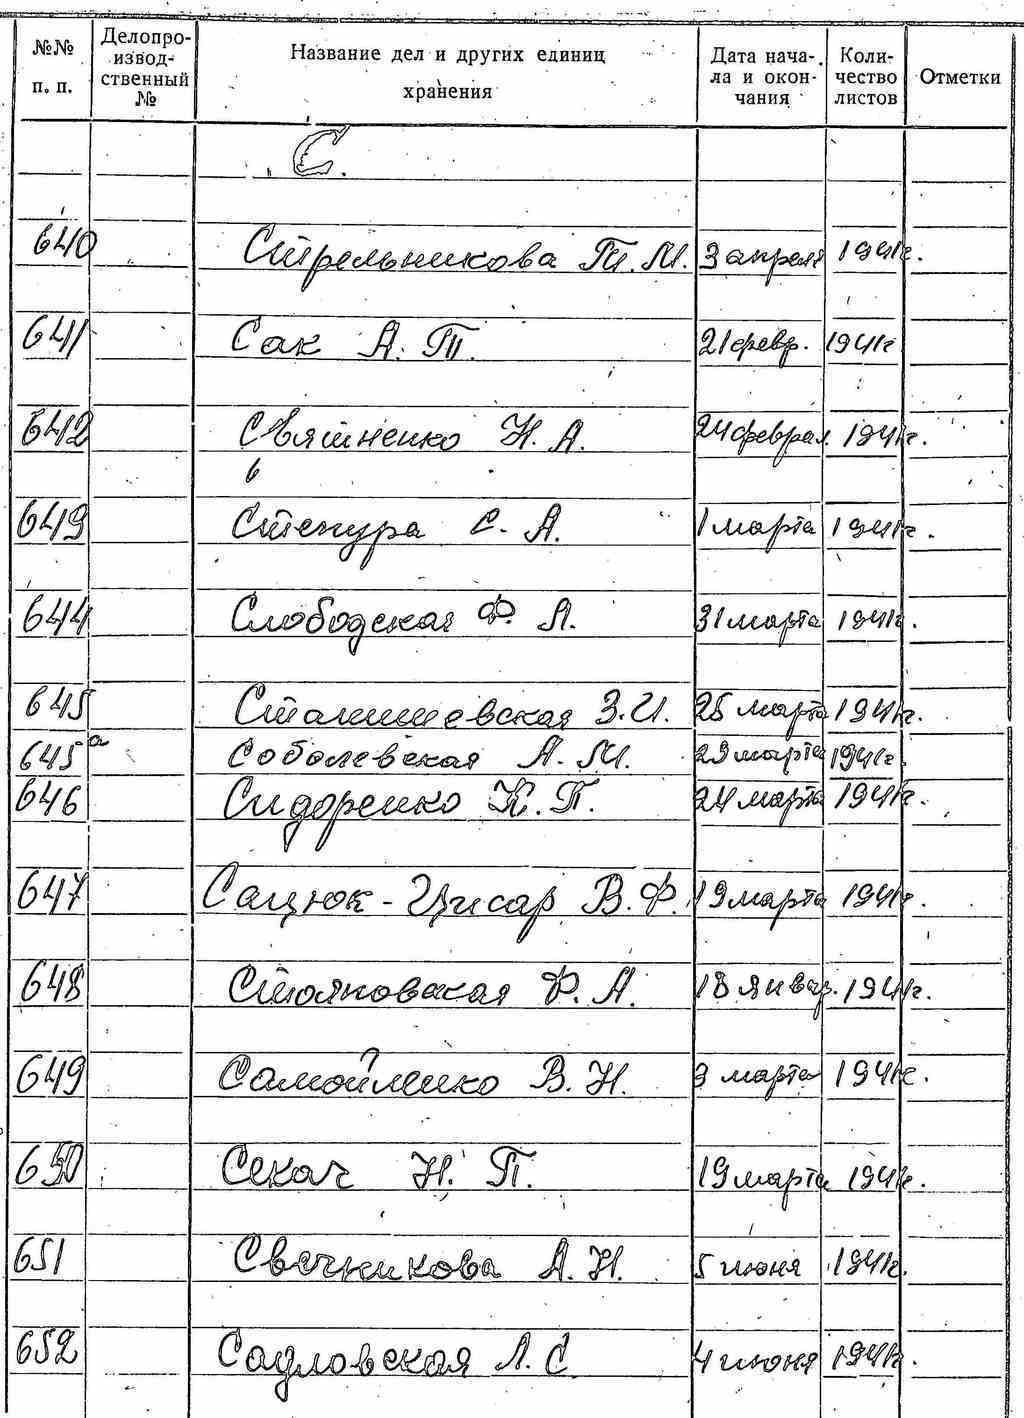 №№ п. п. Делопроизводственный № Название дел и других единиц хранения Дата начала и окончания Количество листов Отметки
С.
640 Стрельникова Т. М. 3 апреля 1941г.
641 Сак А. Т. 21 февр. 1941г
642 Н. А. 24 феврал. 1941г.
643 С. А. 1 марта 1941г.
644 Слободская Ф. Л. 31 марта 1941г.
645 Станишевская З. И. 25 марта 1941г.
645а Соболевская А. М. 29 марта 1941г.
646 Сидоренко К. П. 24 марта 1941г.
647 Сацюк-Цисар В. Ф. 19 марта 1941г.
648 Стояновская Ф. А. 18 январ. 1941г.
649 Самойленко В. Н. 3 марта 1941г.
650 Секач Н. П. 19 марта 1941г.
651 Свечникова А. Н. 5 июня 1941г.
652 Садловская Л. С 4 июня 1941г.